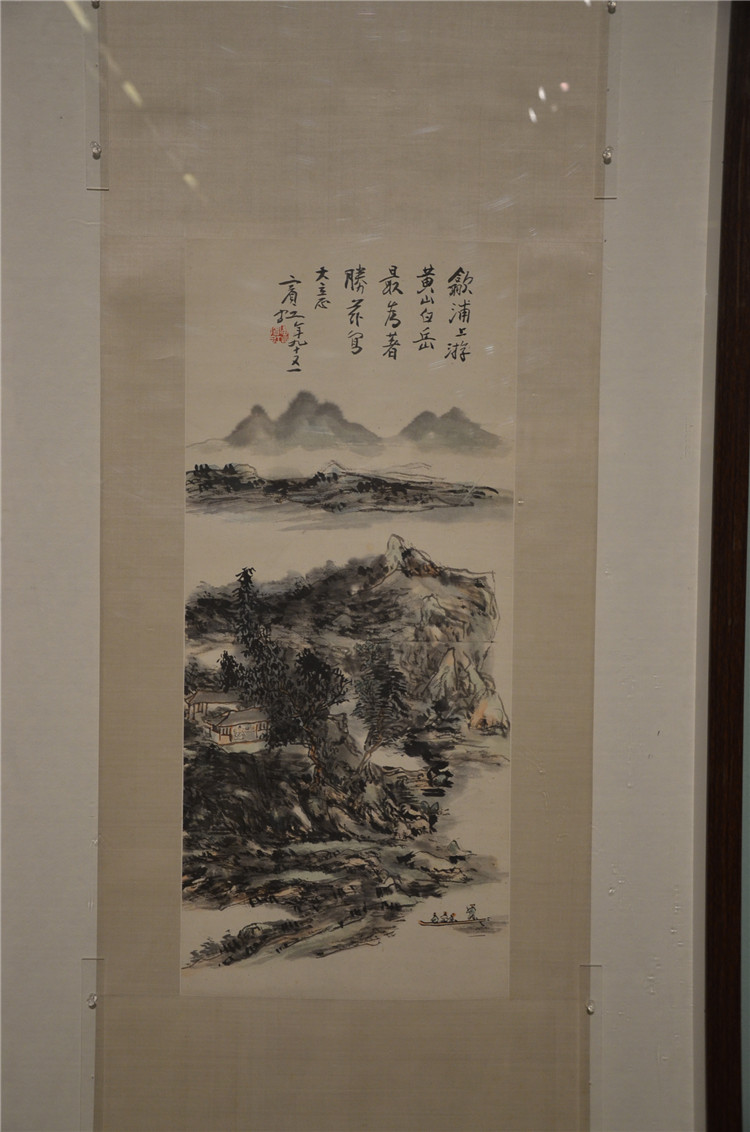 歙浦上游
黄山白岳
最為著
勝茲寫
大立正
賓虹年九十又一